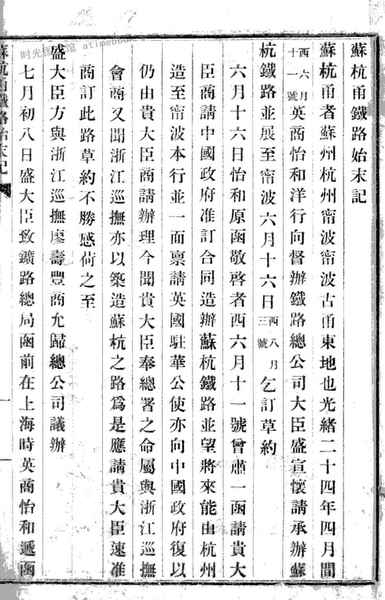 蘇杭甬鐵路始末記
蘇杭甬者蘇州杭州甯波甯波古甬東地也光緒二十四年四月間
西六月十一號英商怡和洋行向督辦鐵路總公司大臣盛宣懷請承辦蘇
杭鐵路並展至甯波六月十六日西八月三號乞訂草約
六月十六日怡和原函敬啓者西六月十一號曾肅一函請貴大
臣商請中國政府准訂合同造辦蘇杭鐵路並望將來能由杭州
造至甯波本行並一面稟請英國駐華公使亦向中國政府復以
仍由貴大臣商請辦理今聞貴大臣奉總署之命屬與浙江巡撫
會商又聞浙江巡撫亦以築造蘇杭之路為是應請貴大臣速准
商訂此路草約不勝感荷之至
盛大臣方與浙江巡撫廖壽豐商允歸總公司議辦
七月初八日盛大臣致鑛路總局函前在上海時英商怡和遞函
蘇杭甬鐵路始末記